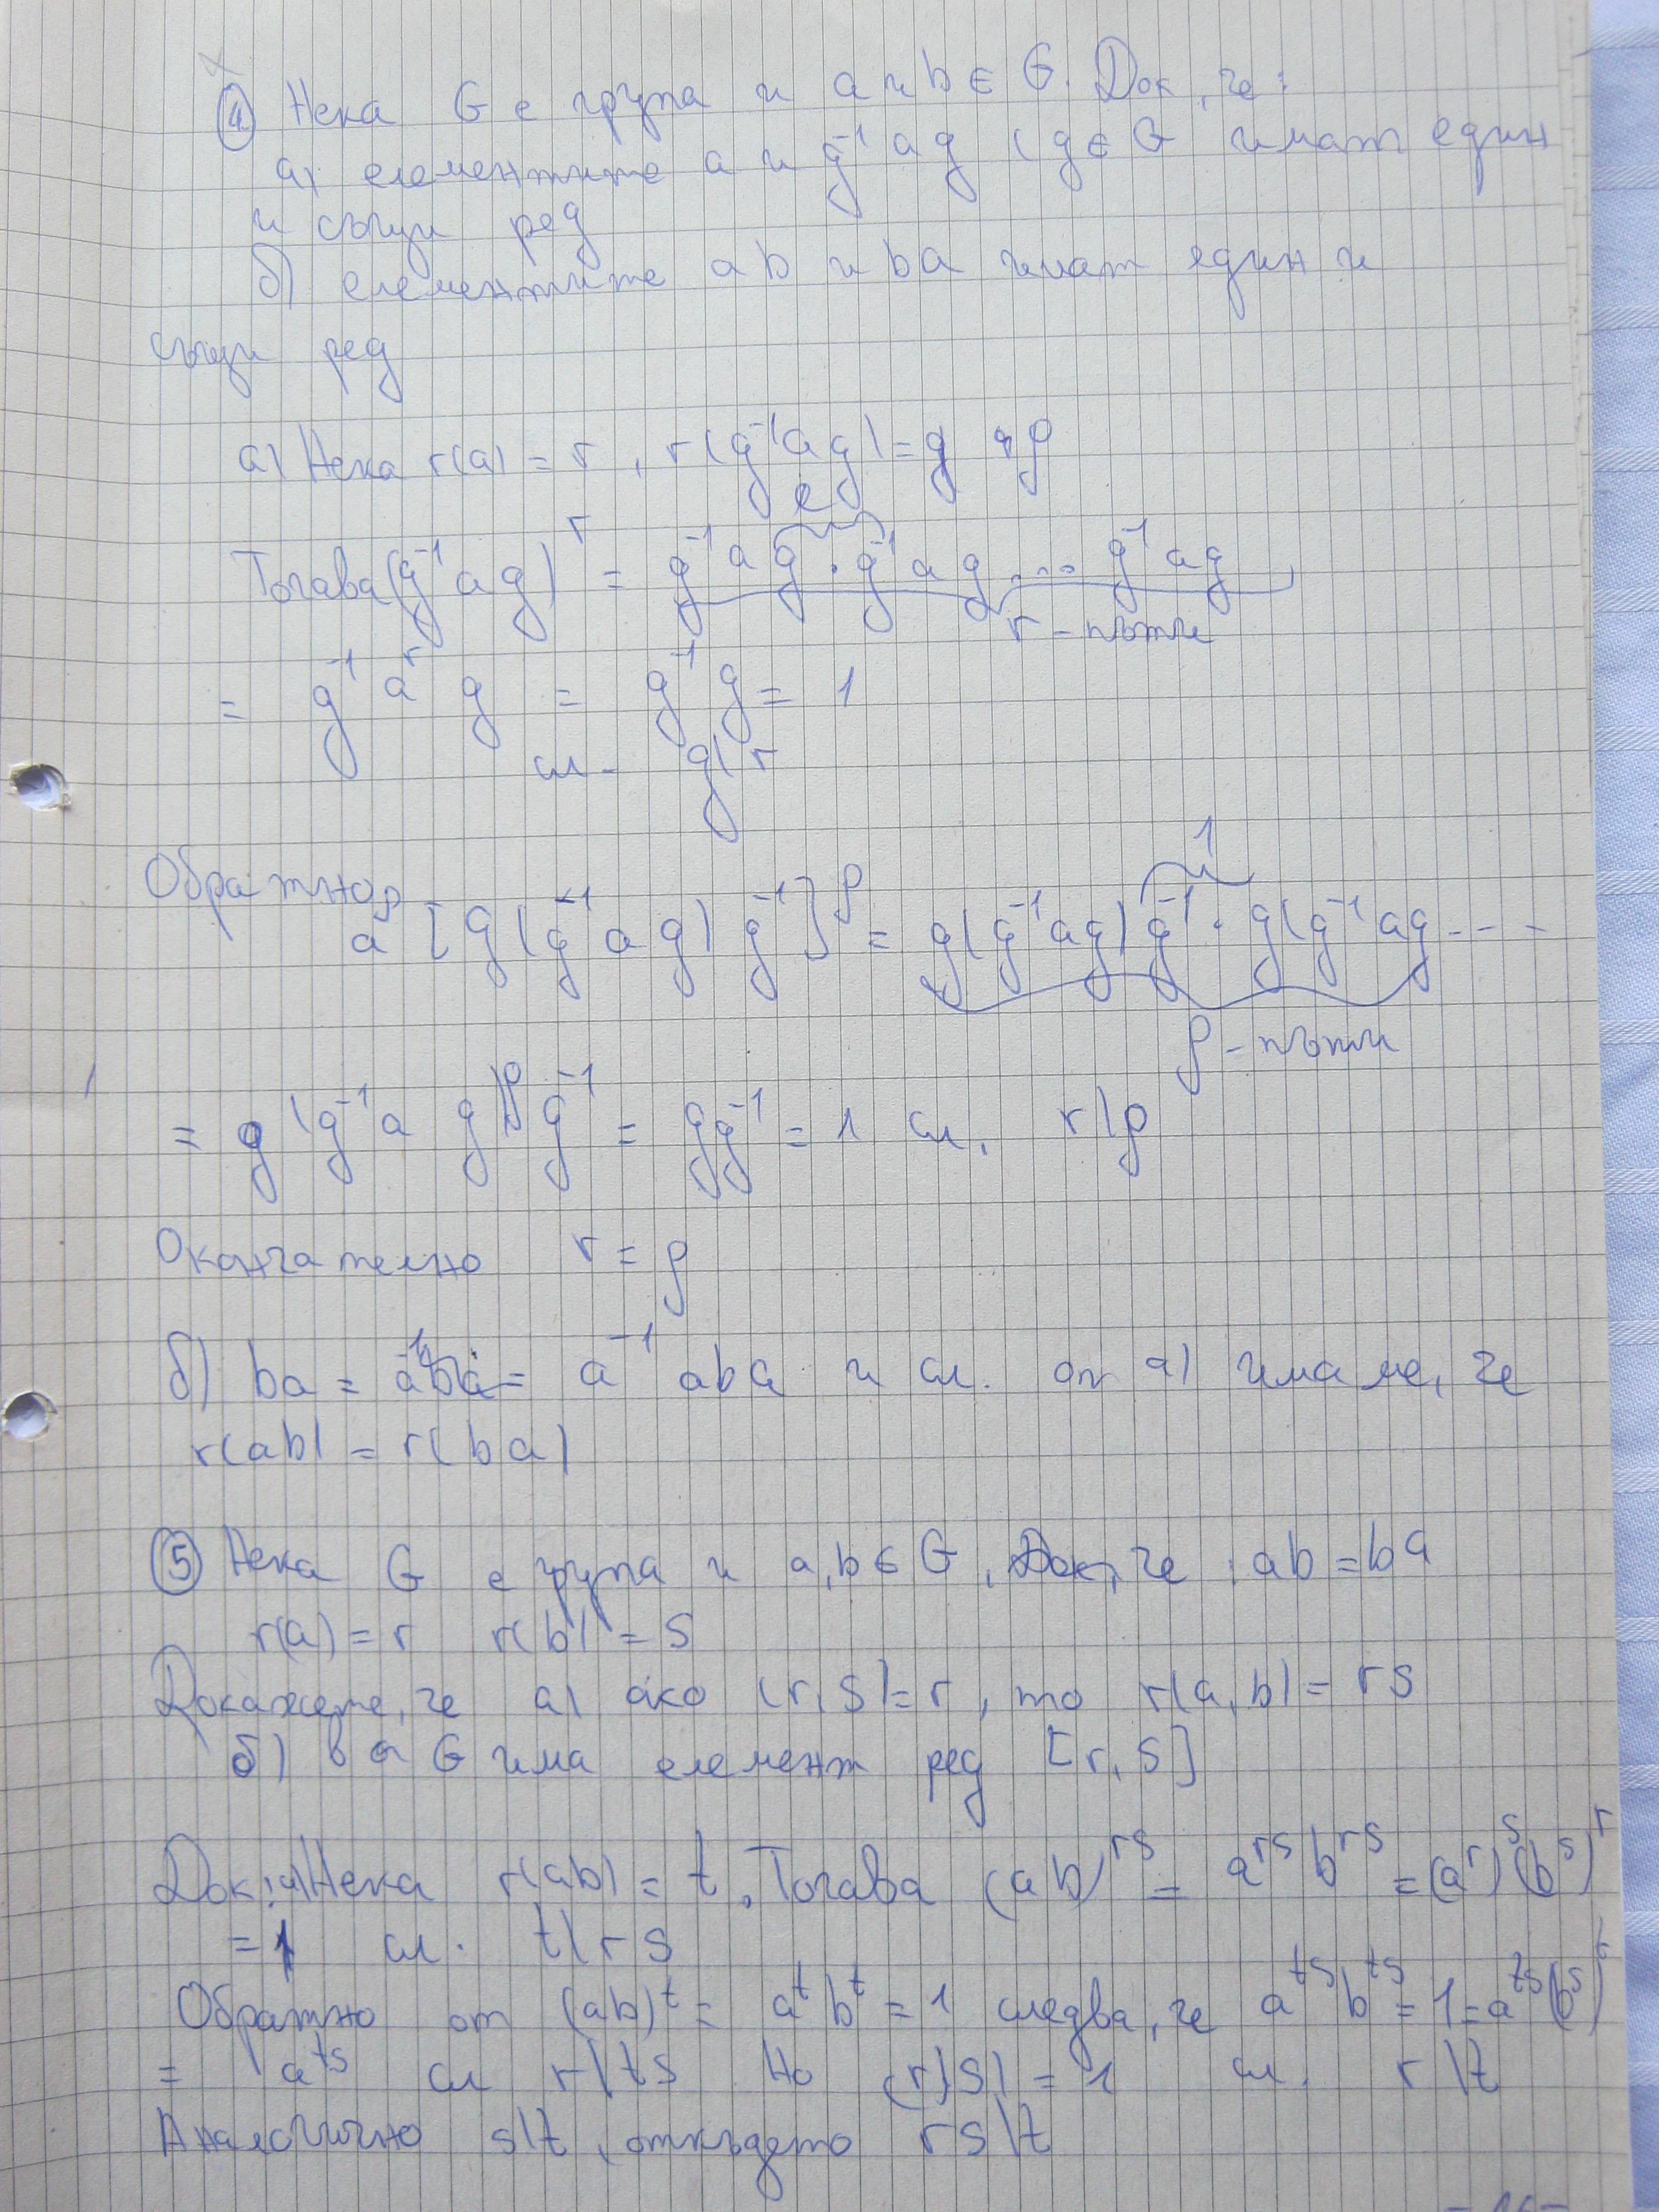 ④ Нека G е група и a и b ∈ G. Док, че:
а) елементите a и g⁻¹ag (g∈G имат един
и същи ред
б) елементите ab и ba имат един и
същи ред
а) Нека r(a) = r, r(g⁻¹ag) = ρ
e
Тогава (g⁻¹ag)ʳ = g⁻¹ag·g⁻¹ag ... g⁻¹ag
r-пъти
= g⁻¹aʳg = g⁻¹g = 1
сл. ρ|r
1
Обратно
a^ρ [g(g⁻¹ag)g⁻¹]^ρ = g(g⁻¹ag)g⁻¹·g(g⁻¹ag ---
ρ-пъти
= g(g⁻¹ag)^ρ g⁻¹ = gg⁻¹ = 1 сл. r|ρ
Окончателно r = ρ
б) ba = a⁻¹aba и сл. от а) имаме, че
r(ab) = r(ba)
⑤ Нека G е група и a,b∈G, Док, че: ab = ba
r(a) = r r(b) = s
Докажете, че а) ако (r,s) = r, то r(a,b) = rs
б) в G има елемент ред [r,s]
Док: а) Нека r(ab) = t. Тогава (ab)^rs = a^rs b^rs = (a^r)^s (b^s)^r
= 1 сл. t|rs
Обратно от (ab)^t = a^t b^t = 1 следва, че a^ts b^ts = 1 = a^ts (b^s)^t
= a^ts сл r|ts Но (r,s) = 1 сл. r|t
Аналогично s|t, откъдето rs|t